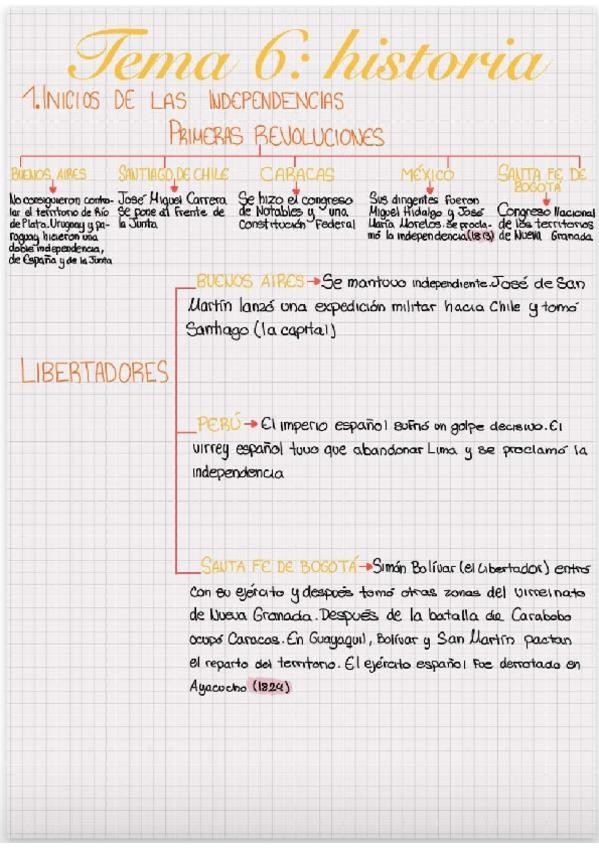 Tema 6: historia
1. INICIOS DE LAS INDEPENDENCIAS
PRIMERAS REVOLUCIONES
BUENOS AIRES
No consiguieron contro-
lar el territorio de Río
de Plata. Uruguay y pa-
raguay hicieron una
doble independencia,
de España y de la Junta
SANTIAGO DE CHILE
José Miguel Carrera
Se pone al frente de
la Junta
CARACAS
Se hizo el congreso
de Notables y una
Constitución Federal
MÉXICO
Sus dirigentes fueron
Miguel Hidalgo y José
María Morelos. Se procla-
mó la independencia (1813)
SANTA FE DE
BOGOTÁ
Congreso Nacional
de los territorios
de Nueva Granada
LIBERTADORES
BUENOS AIRES → Se mantuvo independiente. José de San
Martín lanzó una expedición militar hacia Chile y tomó
Santiago (la capital)
PERÚ → El imperio español sufrió un golpe decisivo. El
virrey español tuvo que abandonar Lima y se proclamó la
independencia
SANTA FE DE BOGOTÁ → Simón Bolívar (el Libertador) entró
con su ejército y después tomó otras zonas del virreinato
de Nueva Granada. Después de la batalla de Carabobo
ocupó Caracas. En Guayaquil, Bolívar y San Martín pactan
el reparto del territorio. El ejército español fue derrotado en
Ayacucho (1824)